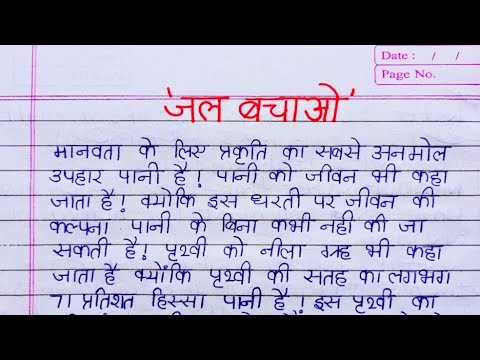 Date : / /
Page No.
'जल बचाओ'
मानवता के लिए प्रकृति का सबसे अनमोल
उपहार पानी है! पानी को जीवन भी कहा
जाता है! क्योकि इस धरती पर जीवन की
कल्पना पानी के बिना कभी नही की जा
सकती है! पृथ्वी को नीला ग्रह भी कहा
जाता है क्योंकि पृथ्वी की सतह का लगभग
71 प्रतिशत हिस्सा पानी है! इस पृथ्वी का